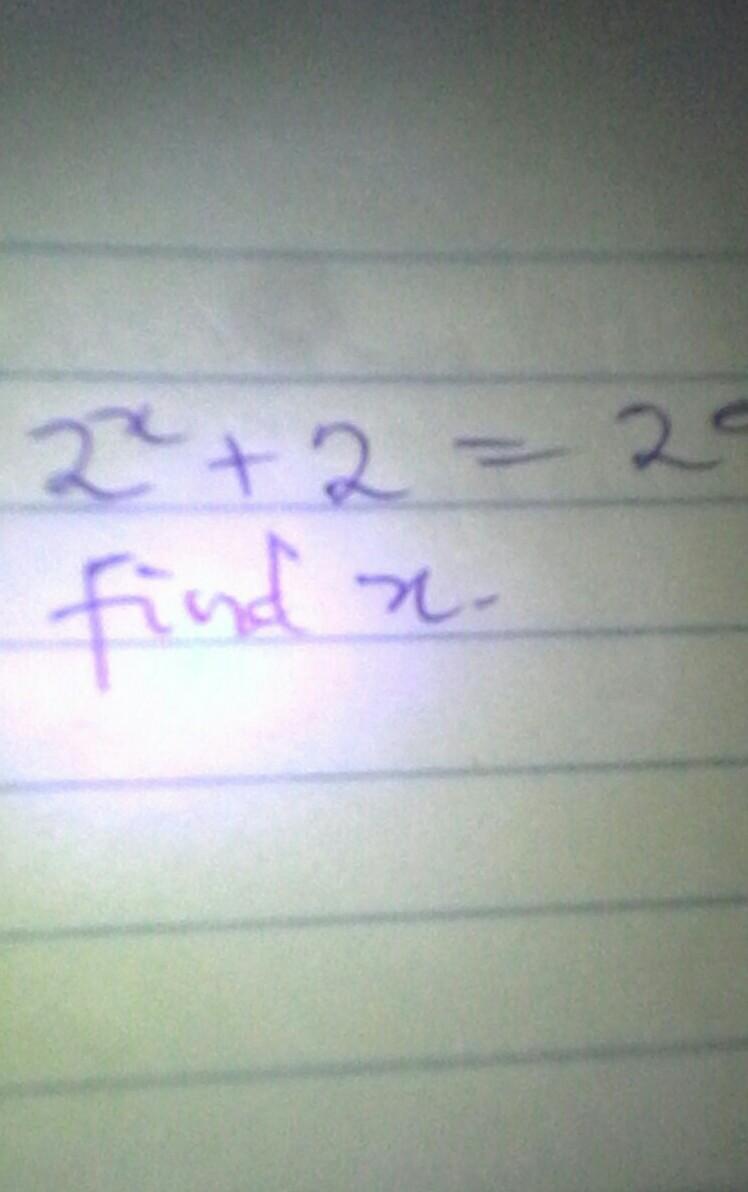 2ˣ + 2 = 2
find x.